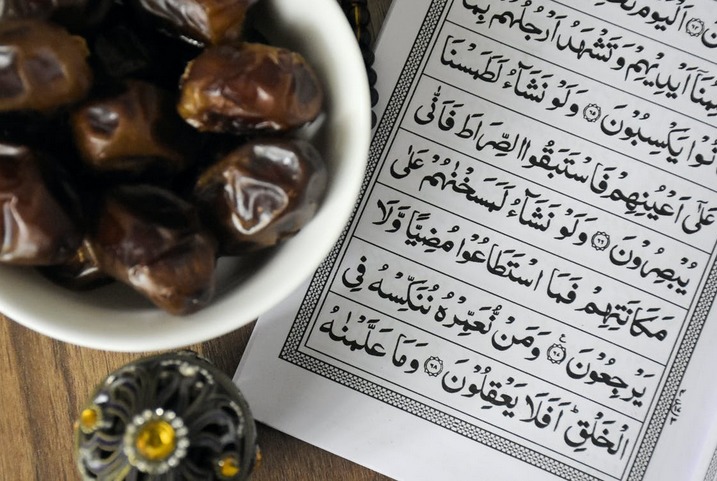 اَلْيَوْمَ
اَيْدِيْهِمْ وَتَشْهَدُ اَرْجُلُهُمْ بِمَا
نُوْا يَكْسِبُوْنَ ۶۵ وَلَوْ نَشَآءُ لَطَمَسْنَا
عَلٰٓى اَعْيُنِهِمْ فَاسْتَبَقُوا الصِّرَاطَ فَاَنّٰى
يُبْصِرُوْنَ ۶۶ وَلَوْ نَشَآءُ لَمَسَخْنٰهُمْ عَلٰى
مَكَانَتِهِمْ فَمَا اسْتَطَاعُوْا مُضِيًّا وَّلَا
يَرْجِعُوْنَ ۶۷ وَمَنْ نُّعَمِّرْهُ نُنَكِّسْهُ فِى
الْخَلْقِ ؕ اَفَلَا يَعْقِلُوْنَ ۶۸ وَمَا عَلَّمْنٰهُ